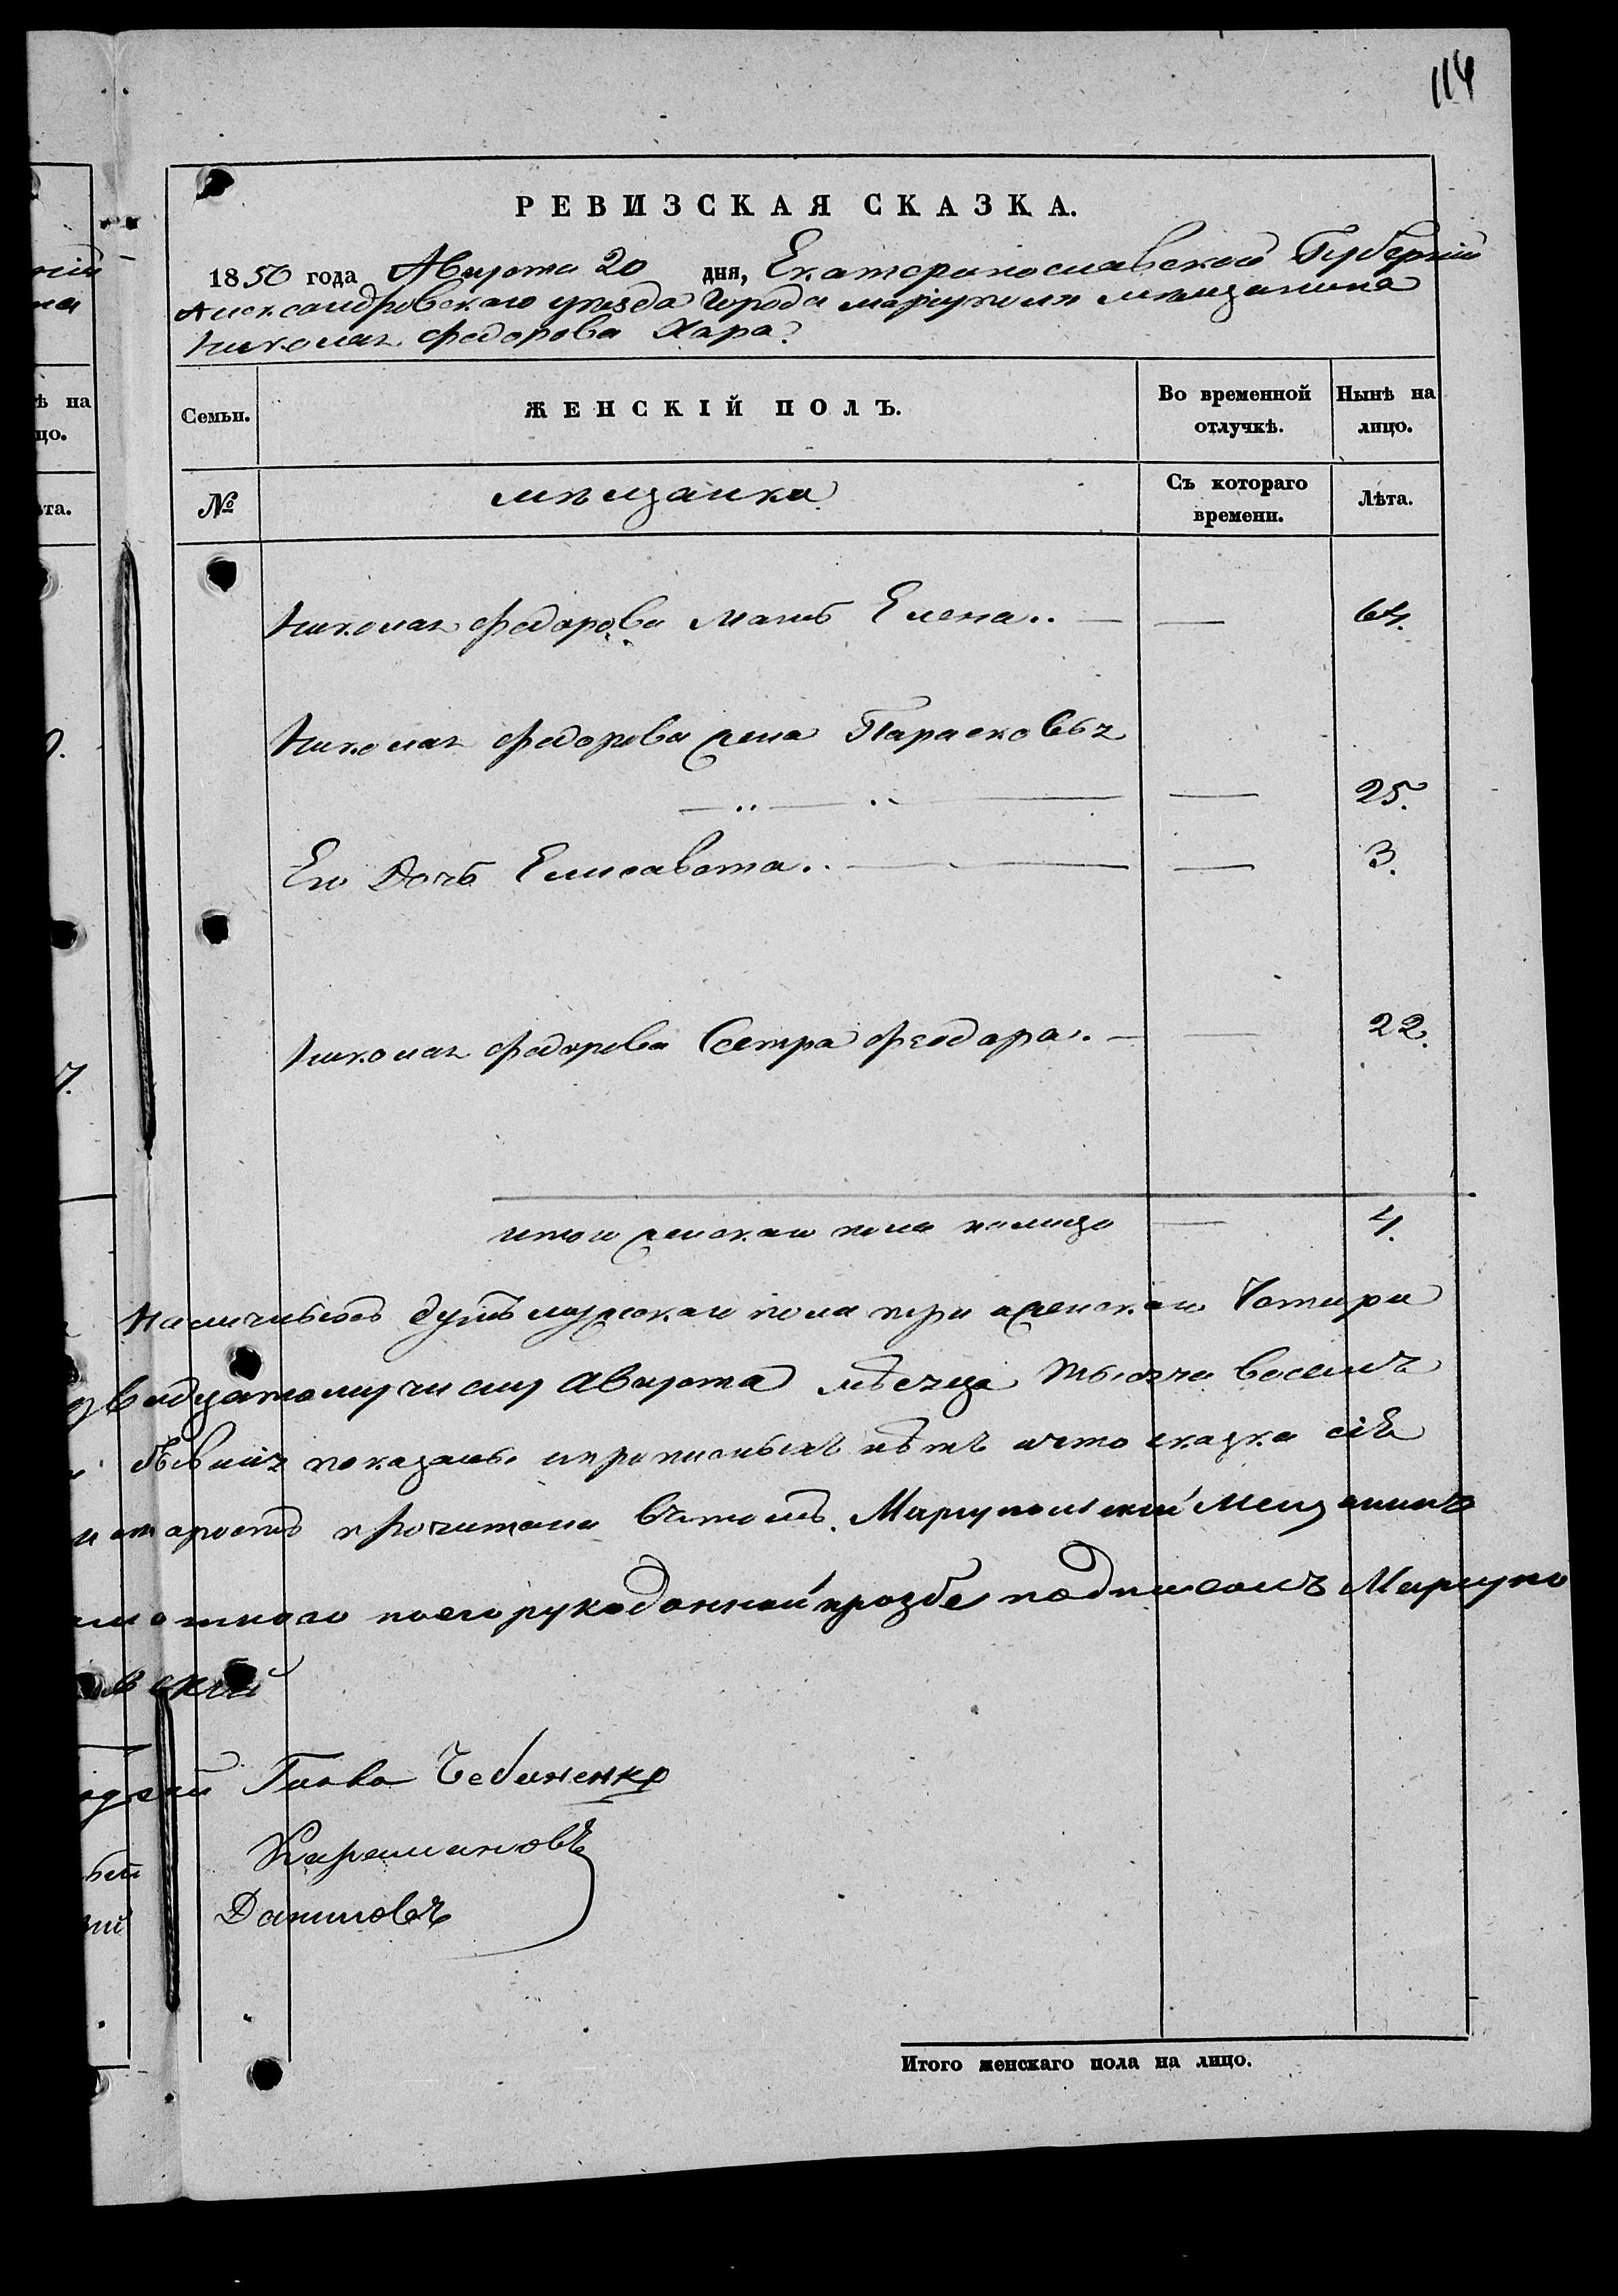 114
РЕВИЗСКАЯ СКАЗКА.
1850 года Августа 20 дня, Екатеринославской Губернiи
Александровскаго уезда города Марiуполя мещанина
Николая Федорова Хара.
Семьи. ЖЕНСКІЙ ПОЛЪ. Во временной отлучкѣ. Нынѣ на лицо.
№ мещанка Съ котораго времени. Лѣта.
Николая Федорова мать Елена.. — — 64.
Николая Федорова жена Парасковья
— .. — .. — — 25.
Его Дочь Елисавета.. — — 3.
Николая Федорова Сестра Феодора. — — 22.
итого женскаго пола налицо — 4.
Наличныхъ душъ мужскаго пола три аженскаго Четири
двадцатому числу Августа мѣсяца тысяча восемъ
показаны ипрописныхъ нѣтъ ичто сказка сiя
прочитана Вчемъ. Мариупольский Мещанинъ
поего рукоданной прозбе подписалъ Мариупо
Глава Чебаненко
Караманов
Даниловъ
Итого женскаго пола на лицо.
ѣ на
цо.
та.